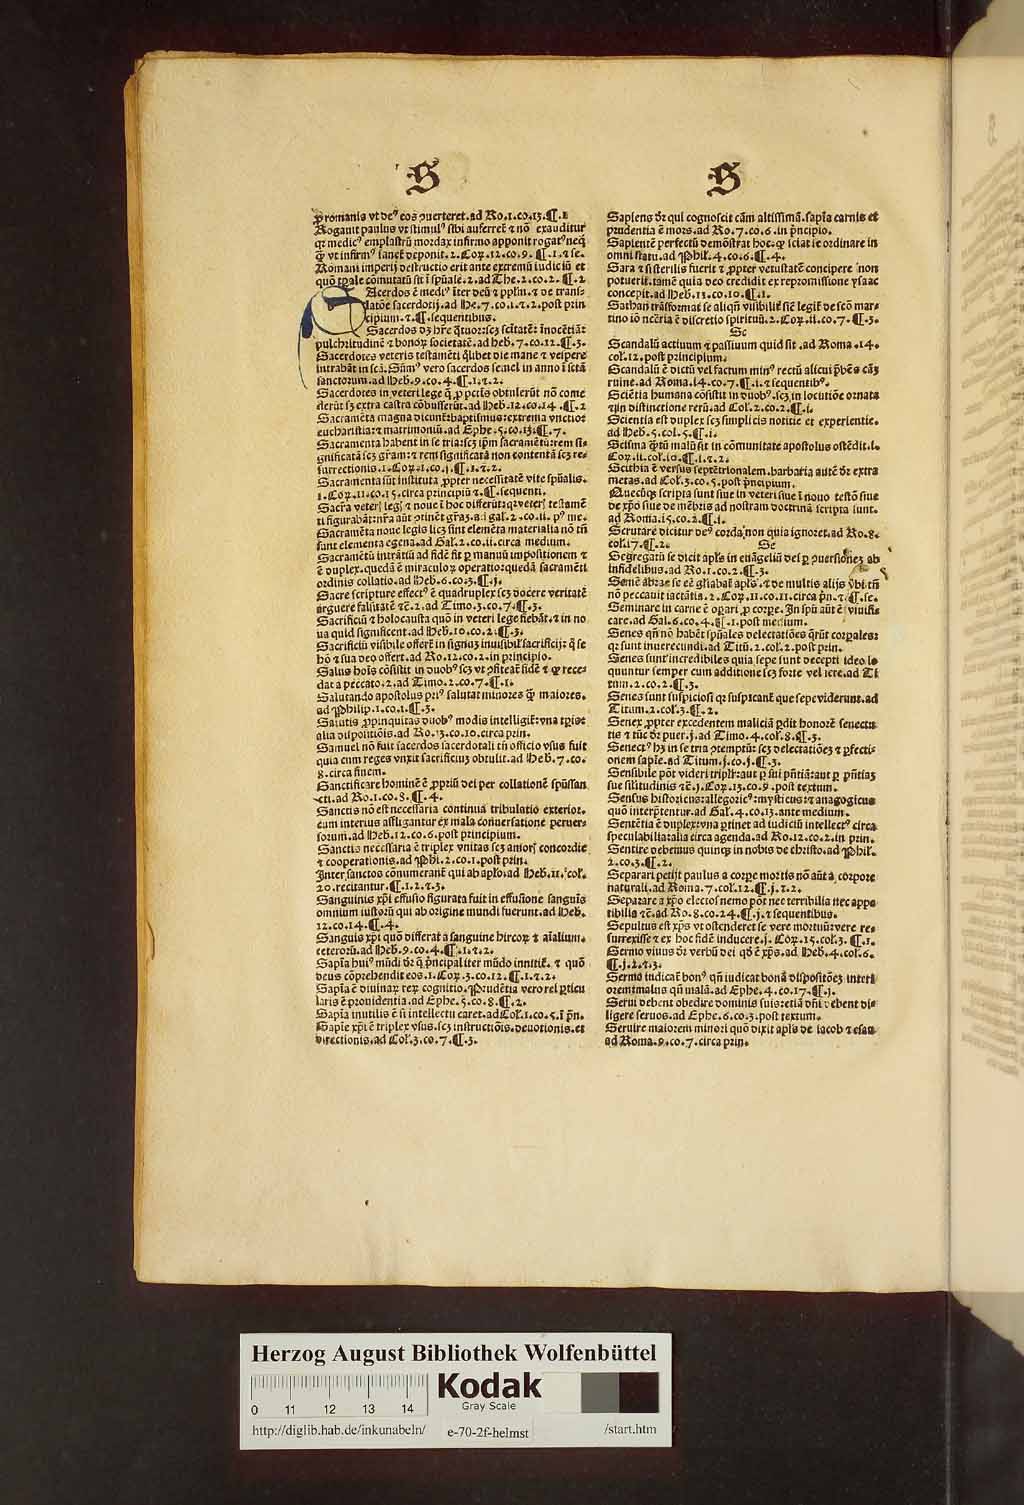 S
ꝓromanis vt deꝰ eos ꝯuerteret.ad Ro.1.co.13.¶.
Rogauit paulus vt stimulꝰ sibi auferret̃ ⁊ nõ exauditur
qꝛ medicꝰ emplastrũ mordax infirmo apponit rogatꝰ neq̃
ꝙ̃ vt infirmꝰ sanet̃ deponit.2.Coꝝ.12.co.9.¶.1.⁊ se.
Romani imperij destructio erit ante extremũ iudiciũ et
quõ tꝑale cõmutatũ sit ĩ spũale.2.ad The.2.co.2.¶.2
SAcerdos ẽ mediꝰ ĩter deũ ⁊ ppl̃m.⁊ de trans
latõe sacerdotij.ad He.7.co.1.⁊.2.post prin
cipium.⁊.¶.sequentibus.
Sacerdos dꝫ hr̃e q̃tuor:scꝫ scĩtatẽ:ĩnocẽtiã:
pulchritudinẽ ⁊ honoꝝ societatẽ.ad heb.7.co.12.¶.3.
Sacerdotes veteris testamẽti q̃libet die mane ⁊ vespere
intrabãt in scã.Sũmꝰ vero sacerdos semel in anno ĩ sctã
sanctorum.ad Heb.9.co.4.¶.1.⁊.2.
Sacerdotes in veteri lege q̃ ꝓ pctĩs obtulerũt nõ come
derũt sꝫ extra castra cõbusserũt.ad Heb.12.co.14.¶.2
Sacramẽta magna dicunt̃:baptismus:extrema vnctio:
eucharistia:⁊ matrimoniũ.ad Ephe.5.co.13.¶.7.
Sacramenta habent in se tria:scꝫ ip̃m sacramẽtũ:rem si-
gnificatã scꝫ gr̃am:⁊ rem significatã non contentã scꝫ re-
surrectionis.1.Coꝝ.1.co.j.¶.1.⁊.2.
Sacramenta sũt instituta ꝓpter necessitatẽ vite spũalis.
1.Coꝝ.11.co.15.circa principiũ ⁊.¶.sequenti.
Sacramẽta noue legis licꝫ sint elemẽta materialia nõ tñ
sunt elementa egena.ad Gal.2.co.11.circa medium.
Sacramẽtũ intrãtiũ ad fidẽ fit ꝑ manuũ impositionem ⁊
ẽ duplex.quedã ẽ miraculoꝝ operatio:quedã sacramẽti
ordinis collatio.ad Heb.6.co.3.¶.j.
Sacre scripture effectꝰ ẽ quadruplex scꝫ docere veritatẽ
arguere falsitatẽ ⁊c̃.2.ad Timo.3.co.7.¶.3.
Sacrificiũ ⁊ holocausta quõ in veteri lege fiebãt.⁊ in no
ua quid significent.ad Heb.10.co.2.¶.3.
Sacrificiũ visibile offert̃ in signuꝫ inuisibil̃ sacrificij:q̃ se
hõ ⁊ sua deo offert.ad Ro.12.co.2.in principio.
Salus hoĩs cõsistit in duobꝰ scꝫ vt ꝯfiteat̃ fidẽ ⁊ ꝙ rece-
dat a peccato.2.ad Timo.2.co.7.¶.1.
Salutando apostolus priꝰ salutat minores ꝙ̃ maiores.
ad Philip.1.co.1.¶.3.
Salutis ꝓpinquitas duobꝰ modis intelligit̃:vna tꝑis ⁊
alia dispositiõis.ad Ro.13.co.10.circa prin.
Samuel nõ fuit sacerdos sacerdotali tñ officio vsus fuit
quia cum reges vnxit sacrificiuꝫ obtulit.ad Heb.7.co.
8.circa finem.
Sanctificare hominẽ ẽ ꝓpriũ dei per collationẽ spũssan
cti.ad Ro.1.co.8.¶.4.
Sanctis nõ est necessaria continua tribulatio exterior.
cum interius affligantur ex mala conuersatione peruer-
sorum.ad Heb.12.co.6.post principium.
Sanctis necessaria ẽ triplex vnitas scꝫ amorꝭ concordie
⁊ cooperationis.ad Phi.2.co.1.post prin.
Inter sanctos cõnumerant̃ qui ab apl̃o.ad Heb.11.col.
20.recitantur.¶.1.2.⁊.3.
Sanguinis xp̃i effusio figurata fuit in effusiõne sanguĩs
omnium iustorũ qui ab origine mundi fuerunt.ad Heb.
12.co.14.¶.4.
Sanguis xp̃i quõ differat a sanguine hircoꝝ ⁊ aĩalium.
ceterorũ.ad Heb.9.co.4.¶.1.⁊.2.
Sapĩa huiꝰ mũdi dr̃ q̃ p̃ncipaliter mũdo innitit̃.⁊ quõ
deus cõprehendit eos.1.Coꝝ.3.co.12.¶.1.⁊.2.
Sapĩa ẽ diuinaꝝ reꝝ cognitio.Prudẽtia vero rel ꝑticu
laris ẽ prouidentia.ad Ephe.5.co.8.¶.2.
Sapĩa inutilis ẽ si intellectu caret.ad Col.1.co.5.ĩ p̃n.
Sapĩe xp̃i ẽ triplex vsus.scꝫ instructiõis.deuotionis.et
directionis.ad Col.3.co.7.¶.3.
S
Sapiens dr̃ qui cognoscit cãm altissimã.sapĩa carnis et
prudentia ẽ mors.ad Ro.7.co.6.in p̃ncipio.
Sapientẽ perfectũ demõstrat hoc.ꝙ sciat ie ordinare in
omni statu.ad Phil.4.co.6.¶.4.
Sara ⁊ si sterilis fuerit ⁊ ꝓpter vetustatẽ concipere non
potuerit.tamẽ quia deo credidit ex repromissione ysaac
concepit.ad Heb.11.co.10.¶.1.
Sathan trãsformat se aliqñ visibilit̃ sic̃ legit̃ de scõ mar-
tino iõ nc̃eria ẽ discretio spirituũ.2.Coꝝ.11.co.7.¶.3.
Sc
Scandalũ actiuum ⁊ passiuum quid sit.ad Roma.14.
col.12.post principium.
Scandalũ ẽ dictũ vel factum minꝰ rectũ alicui p̃bẽs cãꝫ
ruine.ad Roma.14.co.7.¶.1.⁊ sequentibꝰ.
Sciẽtia humana cõsistit in duobꝰ.scꝫ in locutiõe ornata
⁊ in distinctione rerũ.ad Col.2.co.2.¶.i.
Scientia est duplex scꝫ simplicis notitie et experientie.
ad Heb.5.col.5.¶.i.
Scisma q̃tũ malũ sit in cõmunitate apostolus ostẽdit.1.
Coꝝ.11.col.10.¶.1.⁊.2.
Scithia ẽ versus septẽtrionalem.barbaria autẽ dr̃ extra
metas.ad Col.3.co.5.post p̃ncipium.
Quecũqꝫ scripta sunt siue in veteri siue ĩ nouo testõ siue
de xp̃o siue de mẽbris ad nostram doctrinã scripta sunt.
ad Roma.15.co.2.¶.i.
Scrutare dicitur deꝰ corda non quia ignoret.ad Ro.8.
col.17.¶.2.
Se
Segregatũ se dicit apl̃s in euãgeliũ dei ꝑ ꝯuersioneꝫ ab
infidelibus.ad Ro.1.co.2.¶.3.
nõ peccauit iactãtis.2.Coꝝ.11.co.11.circa p̃n.⁊.¶.se.
Seminare in carne ẽ oꝑari ꝓ corꝑe.In spũ aũt ẽ viuifi-
care.ad Gal.6.co.4.¶.1.post medium.
Senes qñ nõ habẽt spũales delectatiões q̃rũt corꝑales:
qꝛ sunt inuerecundi.ad Titũ.2.col.2.post prin.
Senes sunt incredibiles quia sepe sunt decepti ideo lo
quuntur semper cum additione scꝫ forte vel ĩcte.ad Ti
tum.2.co.2.¶.3.
Senes sunt suspiciosi qꝛ suspicant̃ que sepe viderunt.ad
Titum.2.col.3.¶.2.
Senex ꝓpter excedentem maliciã ꝑdit honorẽ senectu
tis ⁊ tũc dr̃ puer.j.ad Timo.4.col.8.¶.3.
Senectꝰ hꝫ in se tria ꝯtemptũ:scꝫ delectatiõeꝫ ⁊ ꝑfecti-
onem sapĩe.ad Titum.j.co.j.¶.3.
Sensibile põt videri tripl̃r:aut ꝑ sui p̃ntiã:aut ꝑ p̃ntiaꝫ
sue silitudinis ⁊c̃.j.Coꝝ.13.co.9.post textum.
Sensus historicus:allegoricꝰ:mysticus:⁊ anagogicus
quõ interp̃tentur.ad Gal.4.co.13.ante medium.
Sentẽtia ẽ duplex:vna ꝑtinet ad iudiciũ intellectꝰ circa
speculabilia:alia circa agenda.ad Ro.12.co.2.in prin.
Sentire debemus quinqꝫ in nobis de christo.ad Phil.
2.co.3.¶.2.
Separari petijt paulus a corꝑe mortis nõ aũt a corpore
naturali.ad Roma.7.col.12.¶.j.⁊.2.
Separare a xp̃o electos nemo põt nec terribilia nec appe
tibilia ⁊c̃.ad Ro.8.co.24.¶.j.⁊ sequentibus.
Sepultus est xp̃s vt ostenderet se vere mortuũ:vere re-
surrexisse ⁊ ex hoc fidẽ inducere.j.Coꝝ.15.col.3.¶.1.
Sermo viuus dr̃ verbũ dei qd̃ ẽ xp̃s.ad Heb.4.col.6.
¶.j.2.⁊.3.
Sermo indicat̃ bonꝰ qñ iudicat bonã dispositõeꝫ interi
orem:malus qñ malã.ad Ephe.4.co.17.¶.j.
Serui debent obedire dominis suis:etiã dñi debent di-
ligere seruos.ad Ephe.6.co.3.post textum.
Seruire maiorem minori quõ dixit apl̃s de iacob ⁊ esau
ad Roma.9.co.7.circa prin.
Herzog August Bibliothek Wolfenbüttel
0 11 12 13 14
Kodak
Gray Scale
http://diglib.hab.de/inkunabeln/ e-70-2f-helmst /start.htm